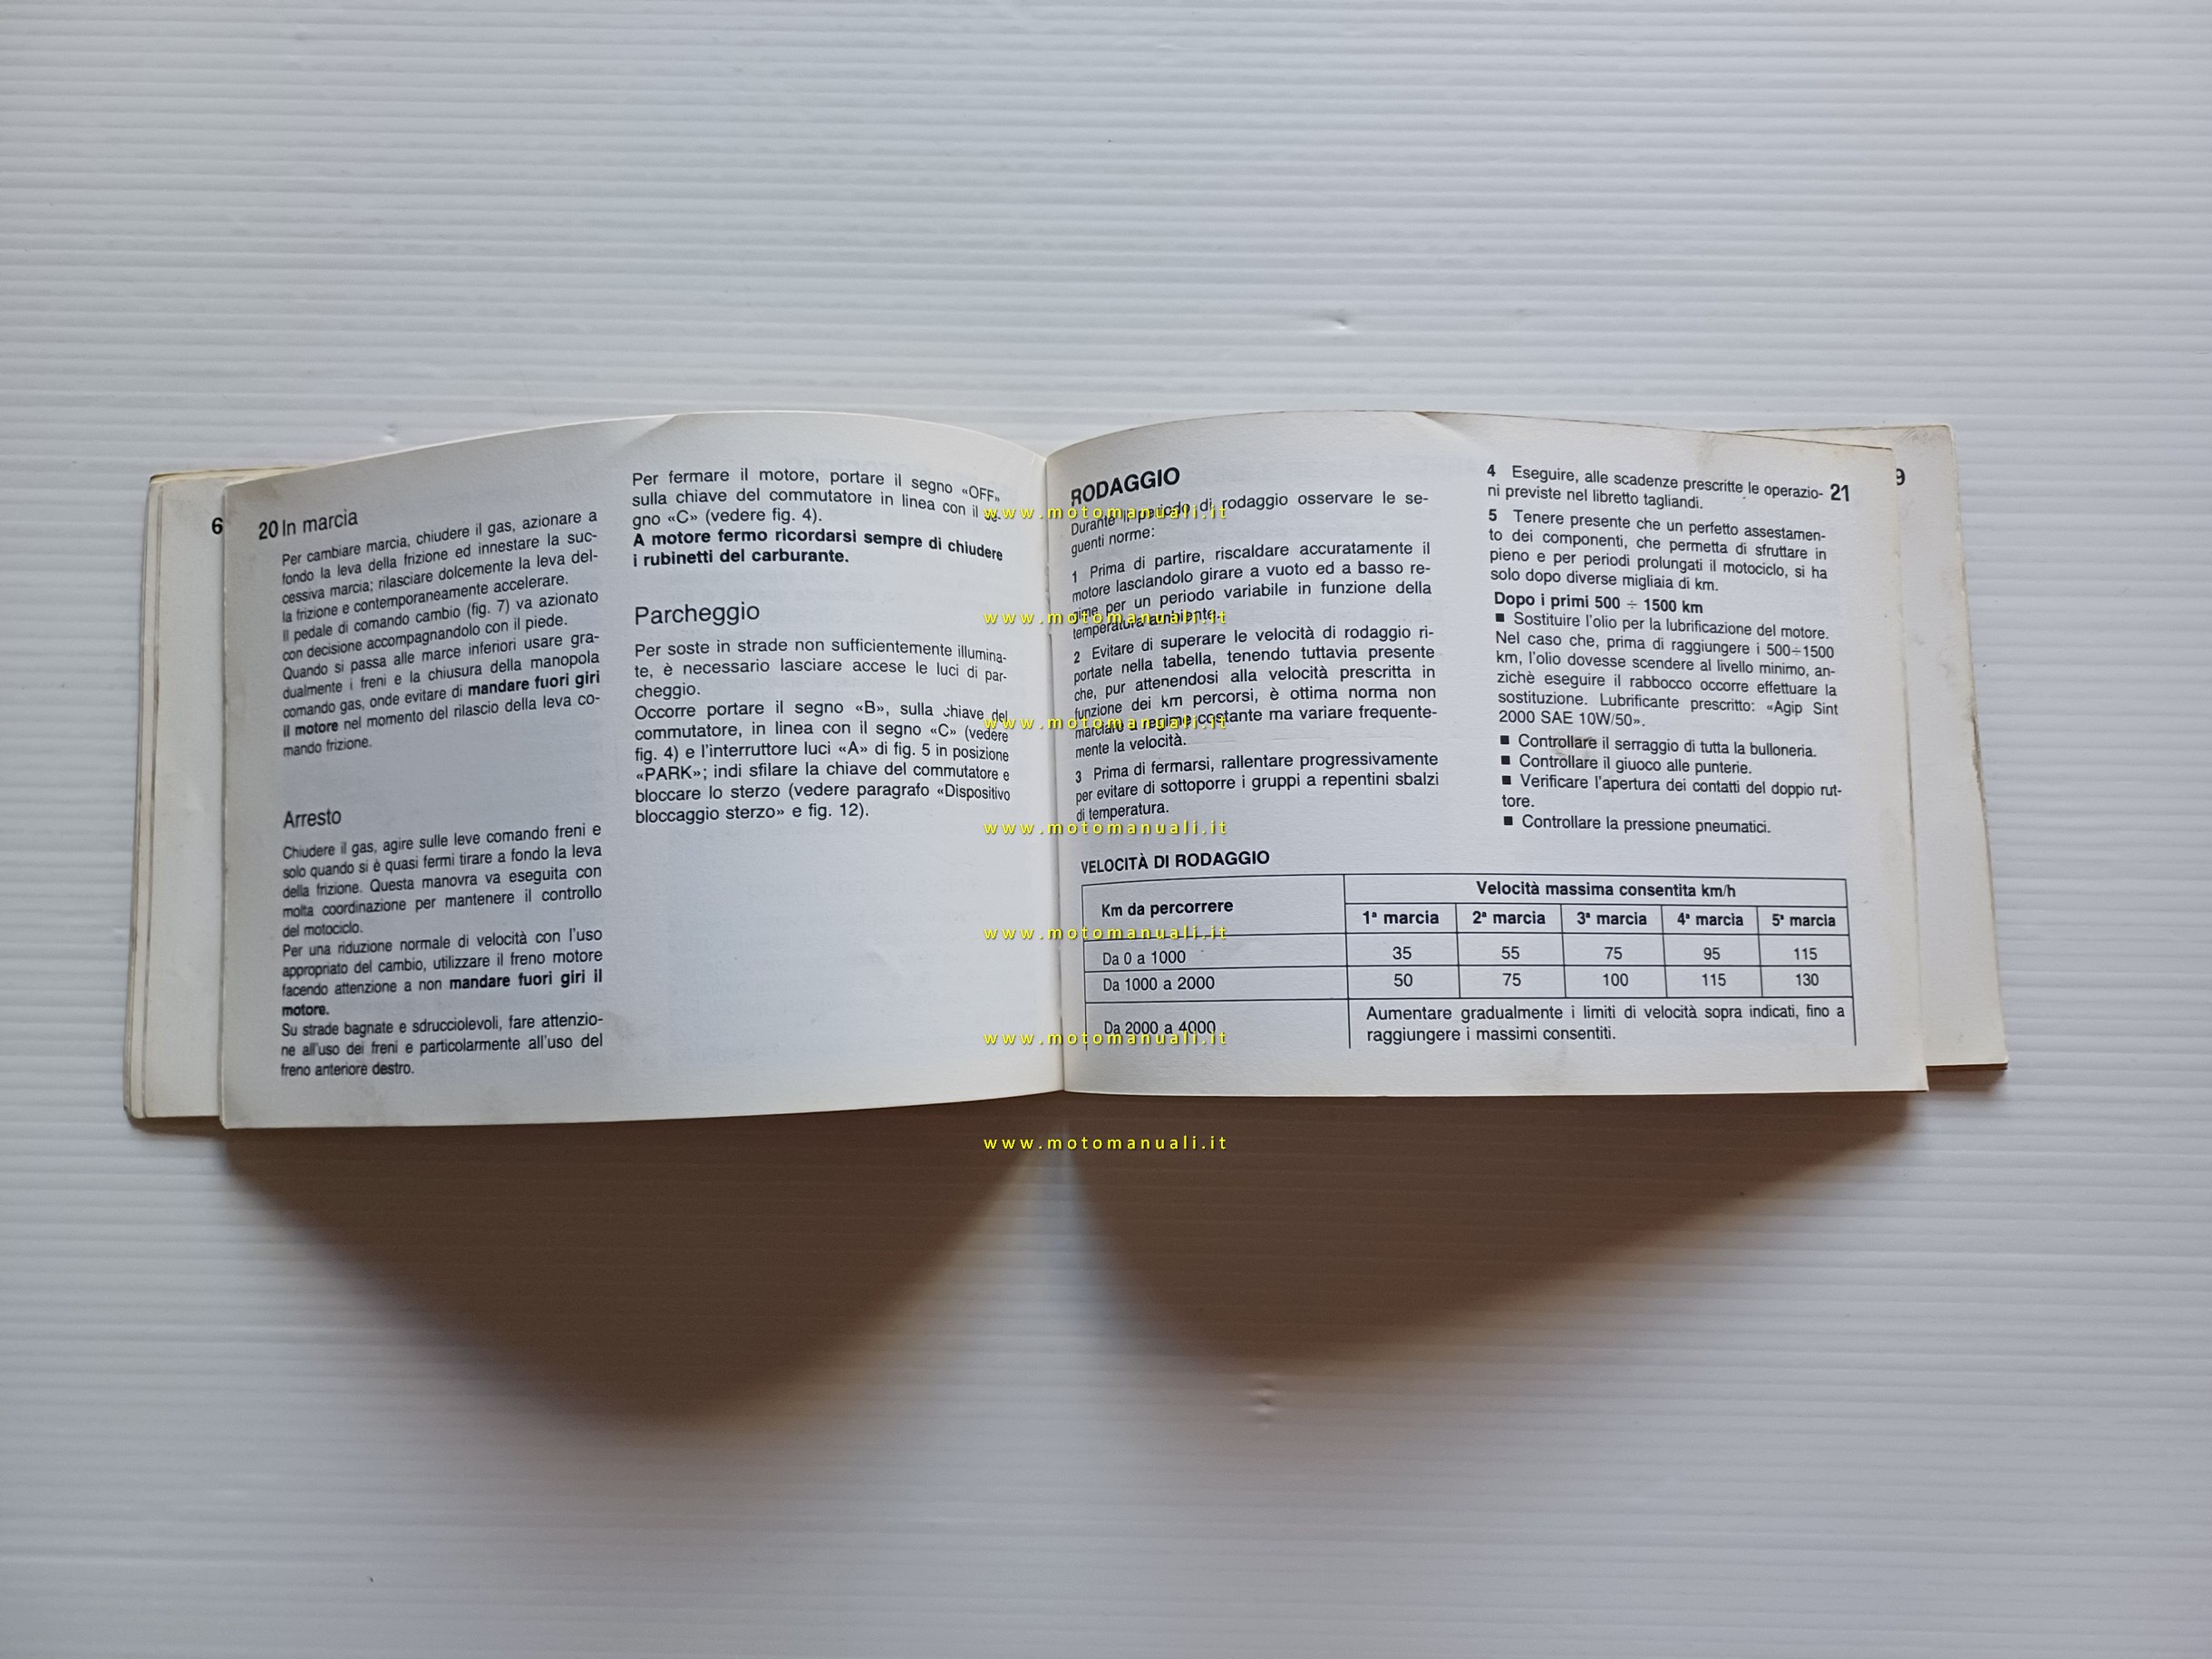 6
20 In marcia
Per cambiare marcia, chiudere il gas, azionare a
fondo la leva della frizione ed innestare la suc-
cessiva marcia; rilasciare dolcemente la leva del-
la frizione e contemporaneamente accelerare.
Il pedale di comando cambio (fig. 7) va azionato
con decisione accompagnandolo con il piede.
Quando si passa alle marce inferiori usare gra-
dualmente i freni e la chiusura della manopola
comando gas, onde evitare di mandare fuori giri
il motore nel momento del rilascio della leva co-
mando frizione.
Arresto
Chiudere il gas, agire sulle leve comando freni e
solo quando si è quasi fermi tirare a fondo la leva
della frizione. Questa manovra va eseguita con
molta coordinazione per mantenere il controllo
del motociclo.
Per una riduzione normale di velocità con l'uso
appropriato del cambio, utilizzare il freno motore
facendo attenzione a non mandare fuori giri il
motore.
Su strade bagnate e sdrucciolevoli, fare attenzio-
ne all'uso dei freni e particolarmente all'uso del
freno anteriore destro.
Per fermare il motore, portare il segno «OFF»
sulla chiave del commutatore in linea con il se-
gno «C» (vedere fig. 4).
A motore fermo ricordarsi sempre di chiudere
i rubinetti del carburante.
Parcheggio
Per soste in strade non sufficientemente illumina-
te, è necessario lasciare accese le luci di par-
cheggio.
Occorre portare il segno «B», sulla chiave del
commutatore, in linea con il segno «C» (vedere
fig. 4) e l'interruttore luci «A» di fig. 5 in posizione
«PARK»; indi sfilare la chiave del commutatore e
bloccare lo sterzo (vedere paragrafo «Dispositivo
bloccaggio sterzo» e fig. 12).
RODAGGIO
Durante il periodo di rodaggio osservare le se-
guenti norme:
1 Prima di partire, riscaldare accuratamente il
motore lasciandolo girare a vuoto ed a basso re-
gime per un periodo variabile in funzione della
temperatura ambiente.
2 Evitare di superare le velocità di rodaggio ri-
portate nella tabella, tenendo tuttavia presente
che, pur attenendosi alla velocità prescritta in
funzione dei km percorsi, è ottima norma non
marciare a regime costante ma variare frequente-
mente la velocità.
3 Prima di fermarsi, rallentare progressivamente
per evitare di sottoporre i gruppi a repentini sbalzi
di temperatura.
4 Eseguire, alle scadenze prescritte le operazio-
ni previste nel libretto tagliandi.
21
9
5 Tenere presente che un perfetto assestamen-
to dei componenti, che permetta di sfruttare in
pieno e per periodi prolungati il motociclo, si ha
solo dopo diverse migliaia di km.
Dopo i primi 500 ÷ 1500 km
■ Sostituire l'olio per la lubrificazione del motore.
Nel caso che, prima di raggiungere i 500÷1500
km, l'olio dovesse scendere al livello minimo, an-
zichè eseguire il rabbocco occorre effettuare la
sostituzione. Lubrificante prescritto: «Agip Sint
2000 SAE 10W/50».
■ Controllare il serraggio di tutta la bulloneria.
■ Controllare il giuoco alle punterie.
■ Verificare l'apertura dei contatti del doppio rut-
tore.
■ Controllare la pressione pneumatici.
VELOCITÀ DI RODAGGIO
Km da percorrere
Velocità massima consentita km/h
1ª marcia 2ª marcia 3ª marcia 4ª marcia 5ª marcia
Da 0 a 1000 35 55 75 95 115
Da 1000 a 2000 50 75 100 115 130
Da 2000 a 4000
Aumentare gradualmente i limiti di velocità sopra indicati, fino a
raggiungere i massimi consentiti.
www.motomanuali.it
www.motomanuali.it
www.motomanuali.it
www.motomanuali.it
www.motomanuali.it
www.motomanuali.it
www.motomanuali.it